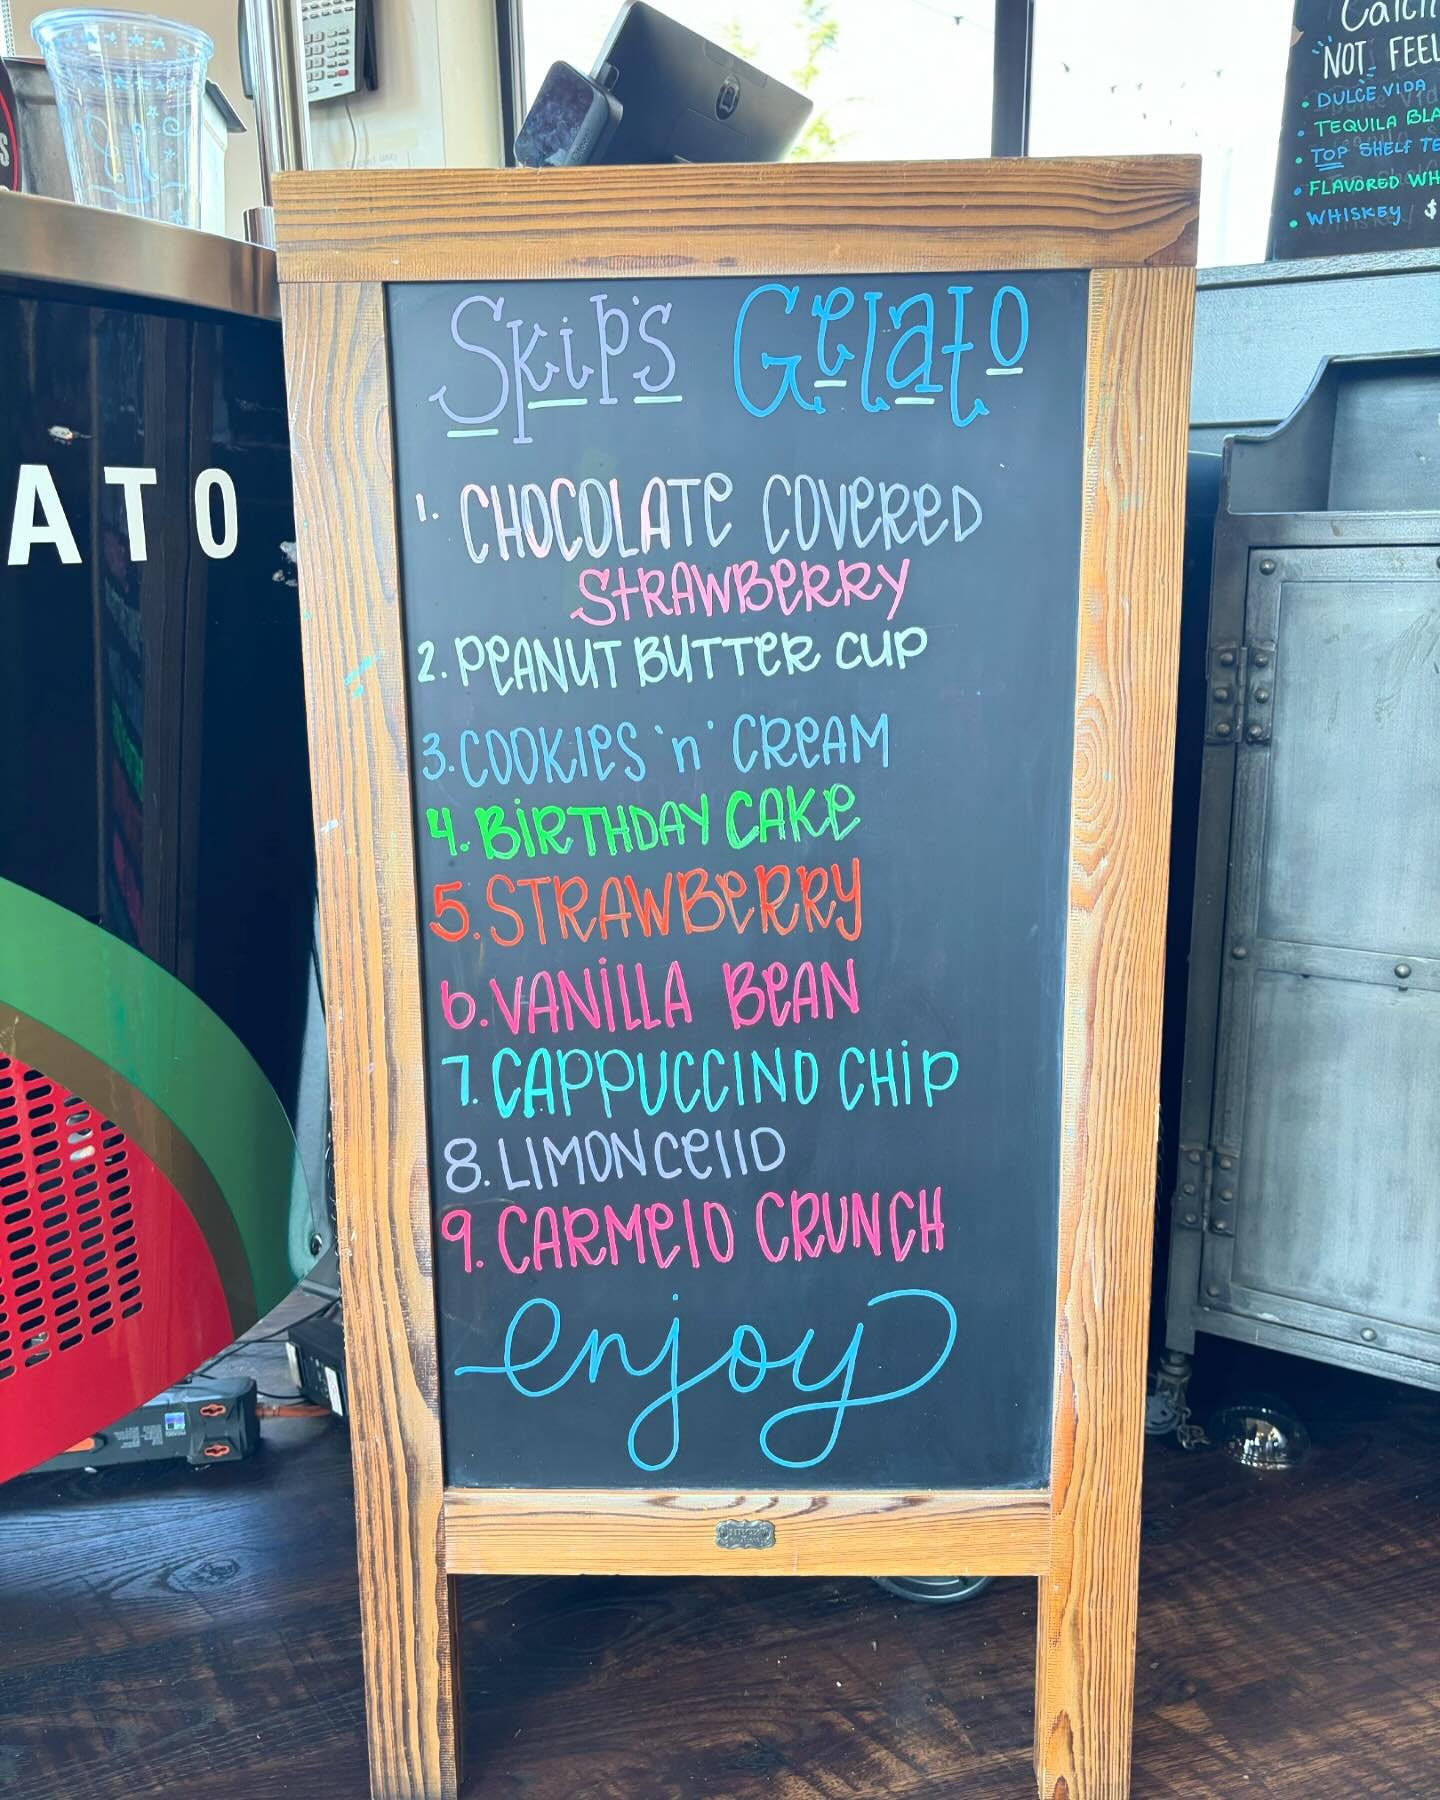 Skip's Gelato
1. CHOCOLATE COVERED
STRAWBERRY
2. PEANUT BUTTER CUP
3. COOKIES 'n' CREAM
4. BIRTHDAY CAKE
5. STRAWBERRY
6. VANILLA BEAN
7. CAPPUCCINO CHIP
8. LIMONCELLO
9. CARMELO CRUNCH
enjoy
ATO
NOT FEEL
• DULCE VIDA
• TEQUILA BLA
• TOP SHELF TE
• FLAVORED WH
• WHISKEY $